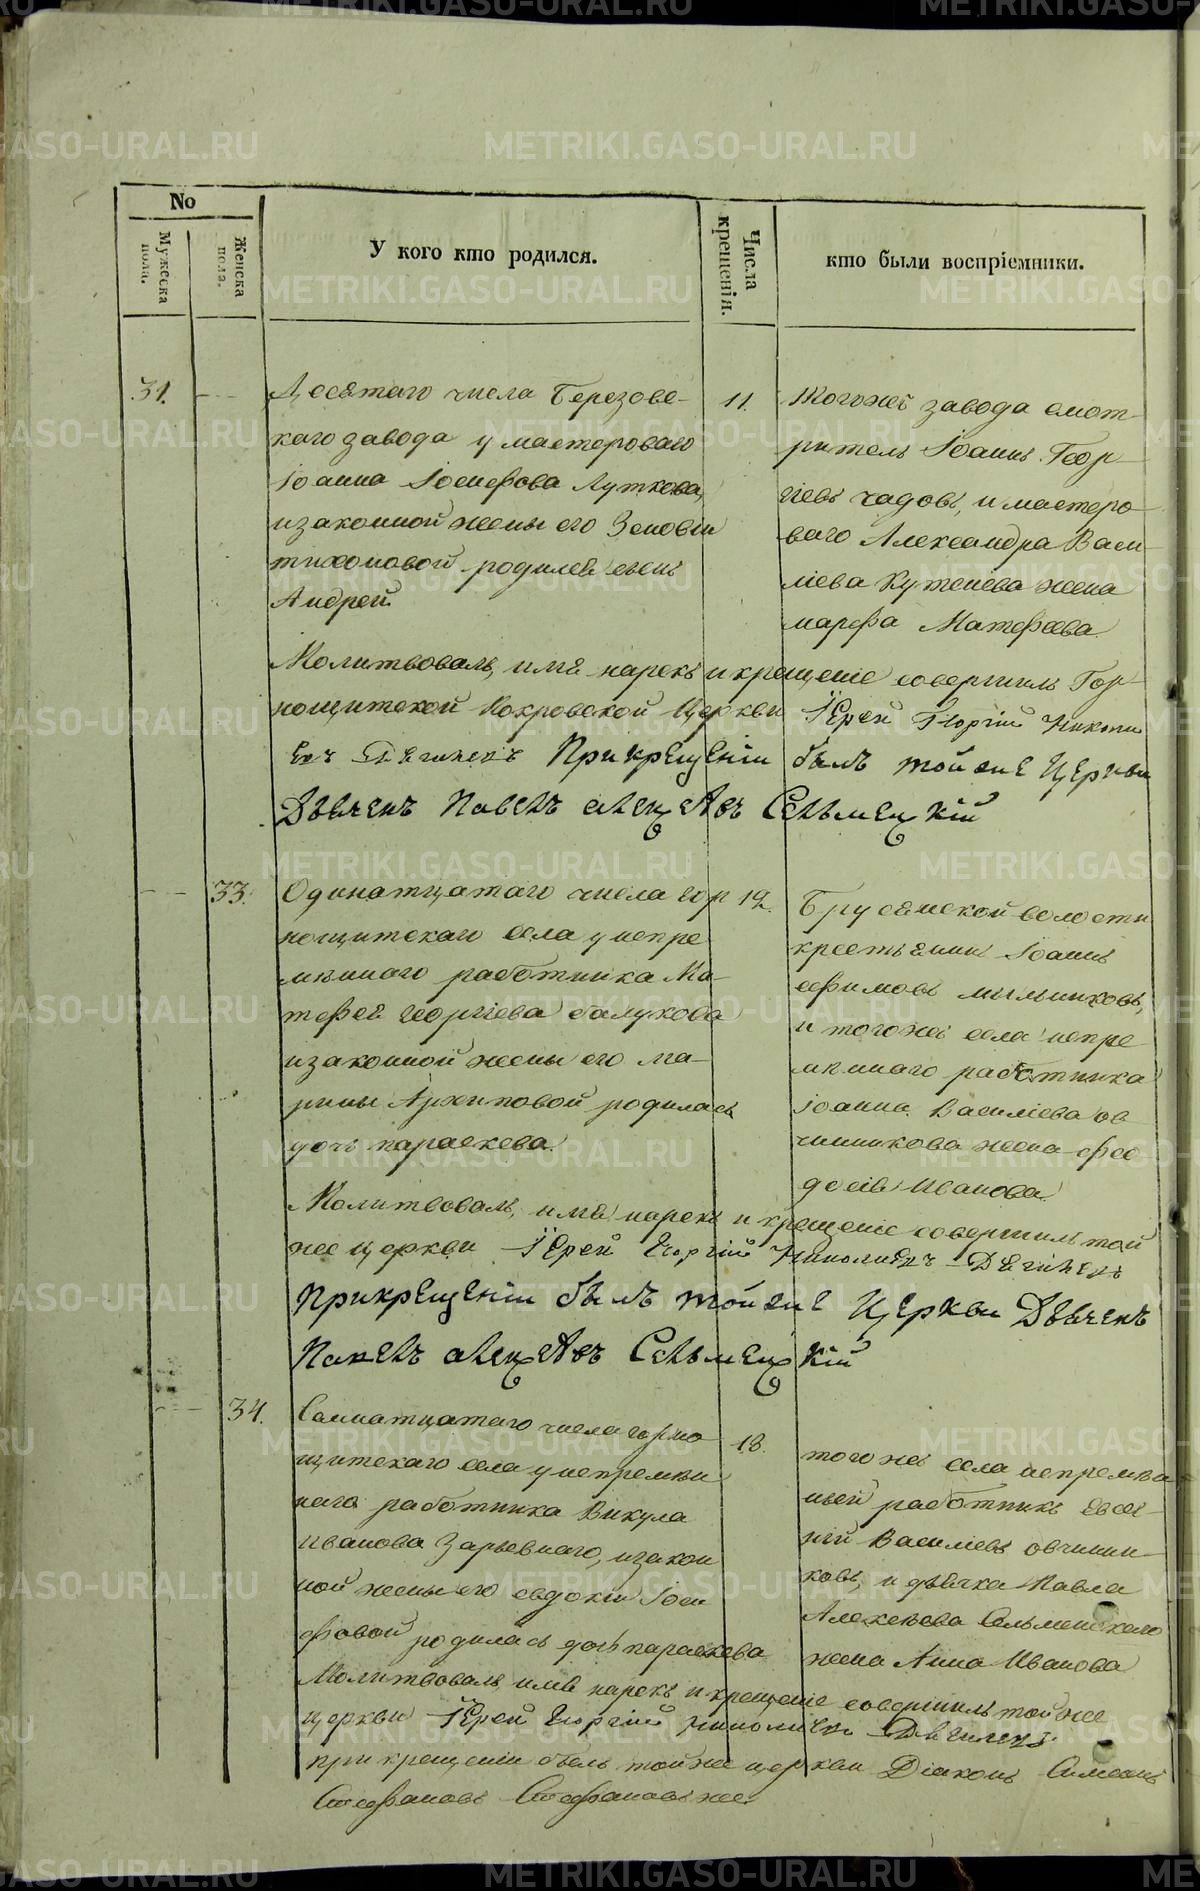 No
Мужеска пола.
Женска пола.
У кого кто родился.
Числа крещенія.
кто были воспріемники.
31.
Десятаго числа Березовс-
каго завода у мастероваго
Іоанна Іосифова Луткова,
изаконной жены его Зеновіи
тихоновой родился сынъ
Андрей.
11.
Тогожъ завода смот-
ритель Іоаннъ Геор-
гіевъ чадовъ, и мастеро-
ваго Александра Васи-
ліева Кутенева жена
марфа Матфеева
Молитвовалъ, имя нарекъ и крещеніе совершилъ Гор-
нощитской Покровской Церкви Іерей Георгій Никола
Прикрещеніи былъ тойже Церкви
Дьячекъ Павелъ алексѣевъ Сельменскій
33.
Одинатцатаго числа гор
нощитскаго села у непре
мѣннаго работника Ма-
тфея георгіева балукова
изаконной жены его ма-
рины Архиповой родилась
дочь параскева.
12.
Брусянской волости
крестьянинъ Іоаннъ
ефимовъ мыльниковъ,
и тогожъ села непре
мѣннаго работника
Іоанна Василіева ов
чинникова жена фео
досія Иванова
Молитвовалъ, имя нарекъ и крещеніе совершилъ той
же церкви Іерей Георгій
Прикрещеніи былъ тойже Церкви Дьячекъ
Павелъ алексѣевъ Сельменскій
34.
Семнатцатаго числа горно
щитскаго села у непремѣн
наго работника Викула
иванова Зарывнаго, изакон
ной жены его евдокіи Іоси
фовой родилась дочь параскева
18.
тогожъ села непремѣн
ный работникъ евсе-
ній Василіевъ овчинни-
ковъ, и дьячка Павла
Алексѣева Сельменскаго
жена Анна Иванова
Молитвовалъ, имя нарекъ и крещеніе совершилъ тойже
церкви Іерей Георгій
при крещеніи былъ тойже церкви Діаконъ Симеонъ
Стефановъ Стефановъ же.